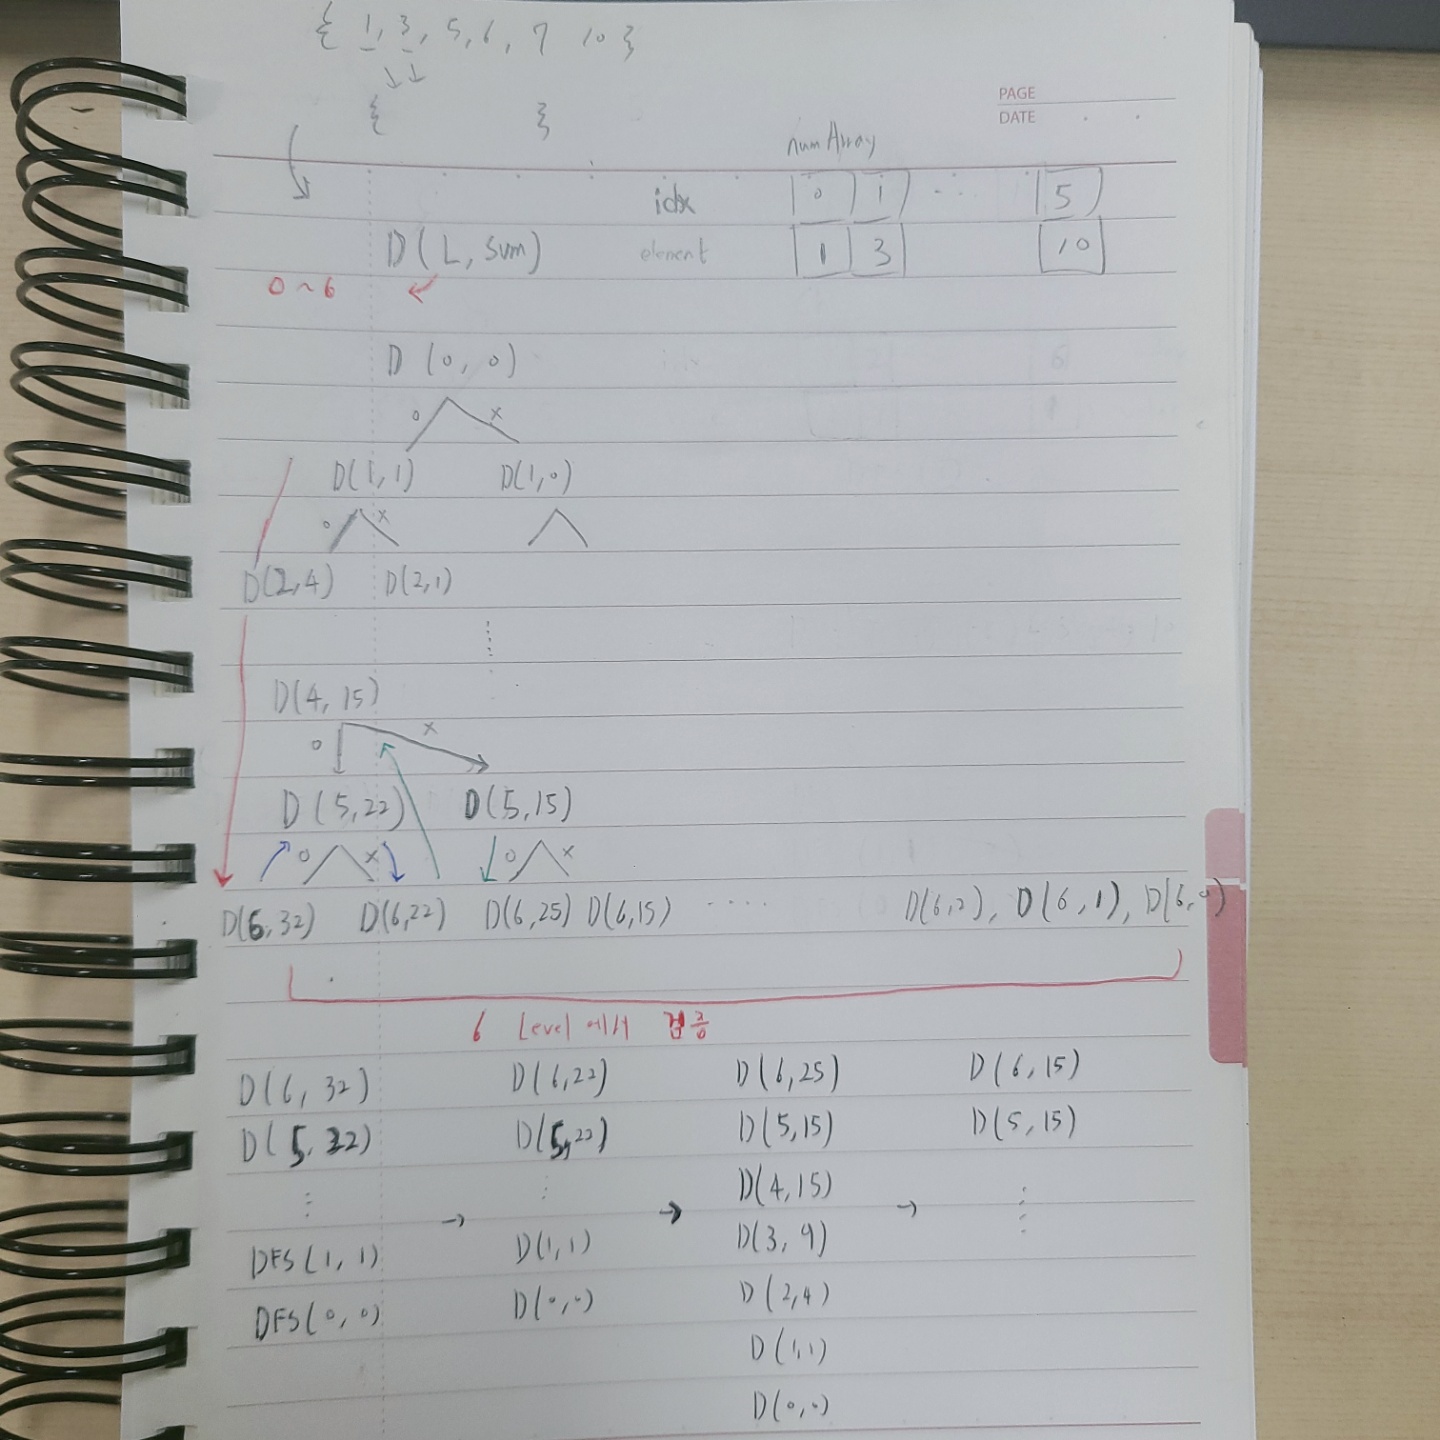 { 1, 3, 5, 6, 7 10 }
{ }
PAGE
DATE
numArray
idx 0 1 ... 5
D(L, sum) element 1 3 10
0 ~ 6
D(0, 0)
o x
D(1, 1) D(1, 0)
o x
D(2,4) D(2,1)
D(4, 15)
o x
D(5,22) D(5,15)
o x o x
D(6,32) D(6,22) D(6,25) D(6,15) ..... D(6,2), D(6,1), D(6,0)
6 Level에서 검증
D(6, 32) D(6,22) D(6,25) D(6,15)
D(5, 22) D(5,22) D(5,15) D(5,15)
D(4,15)
→ → →
DFS(1, 1) D(1,1) D(3, 9)
DFS(0, 0) D(0,0) D(2,4)
D(1,1)
D(0,0)